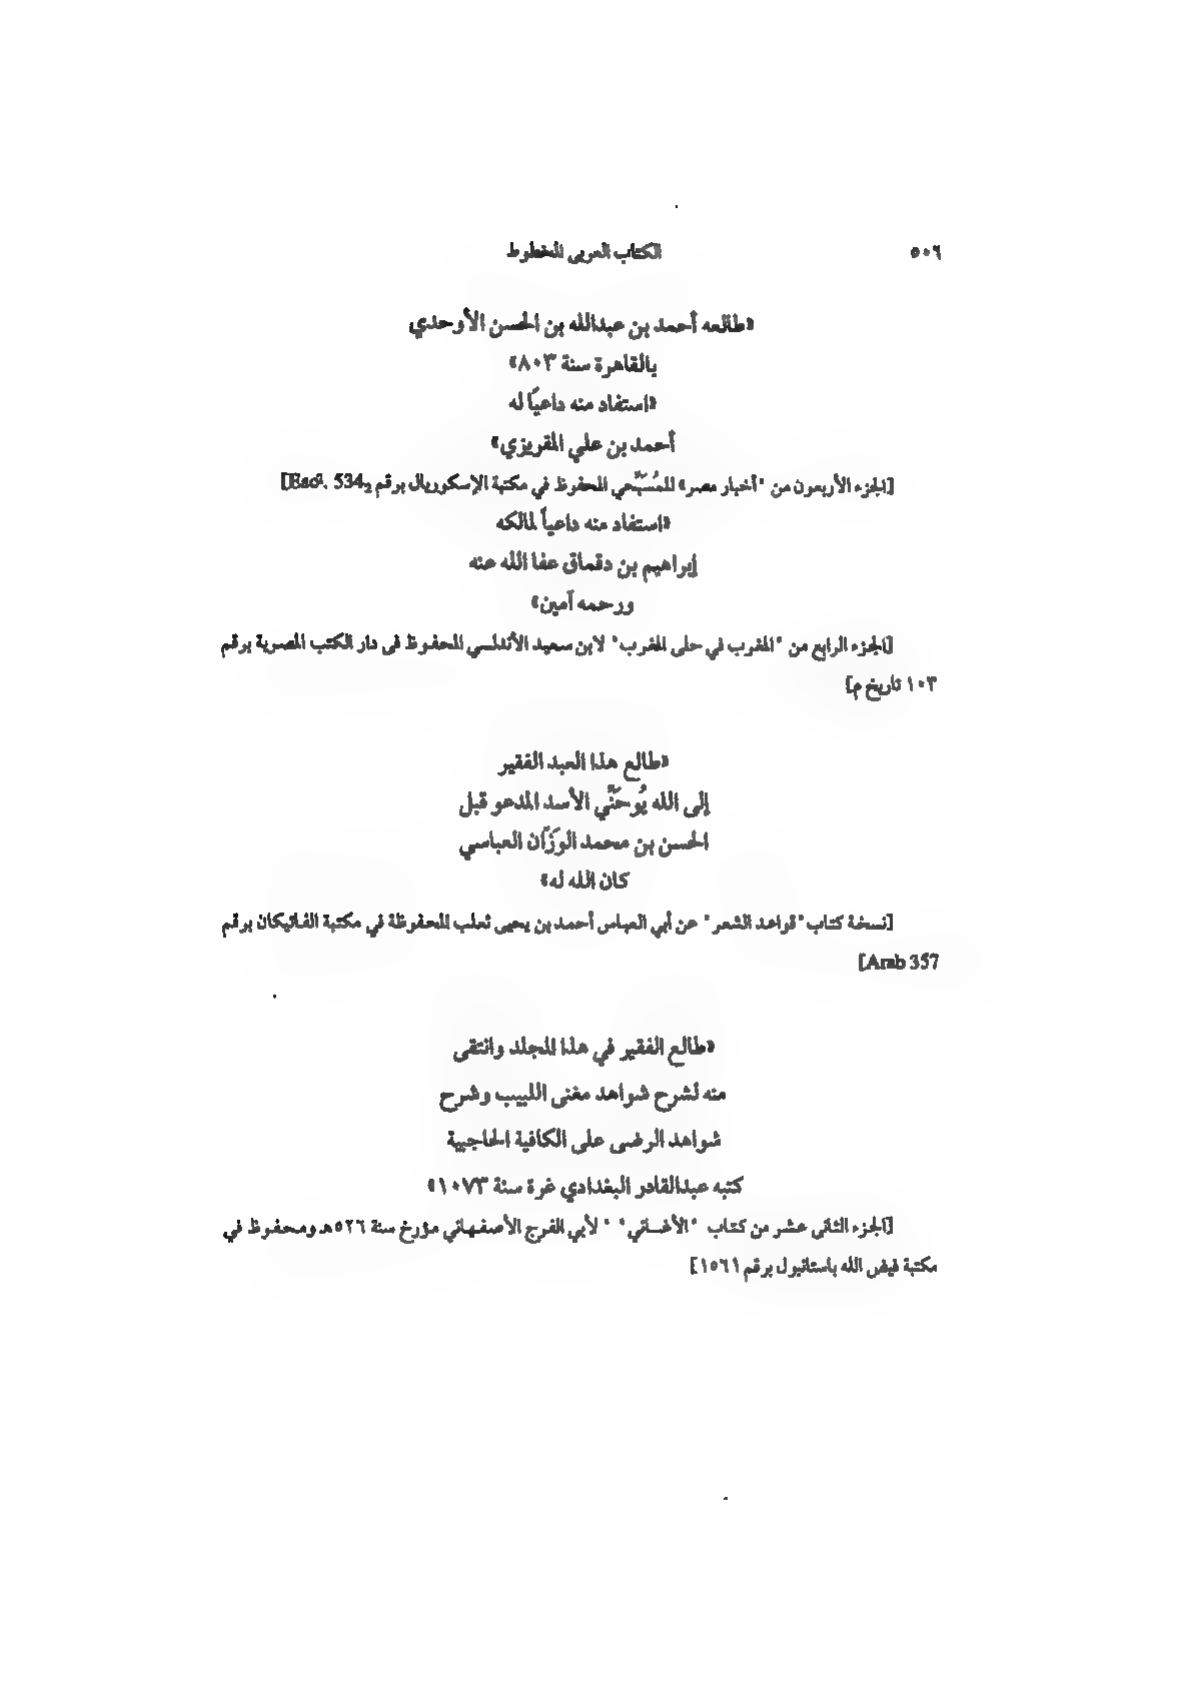 ٥٠٦
الكتاب العربى المخطوط
«طالعه أحمد بن عبدالله بن الحسن الأوحدي
بالقاهرة سنة ٨٠٣»
«استفاد منه داعيًا له
أحمد بن علي المقريزي»
[الجزء الأربعون من "أخبار مصر» للمُسَبِّحي المحفوظ في مكتبة الإسكوريال برقم Esc². 534₂]
«استفاد منه داعياً لمالكه
إبراهيم بن دقماق عفا الله عنه
ورحمه آمين»
[الجزء الرابع من "المغرب في حلى المغرب" لابن سعيد الأندلسي المحفوظ فى دار الكتب المصرية برقم
١٠٣ تاريخ م]
«طالع هذا العبد الفقير
إلى الله يُوحَنَّي الأسد المدعو قبل
الحسن بن محمد الوَزَّان العباسي
كان الله له»
[نسخة كتاب "قواعد الشعر" عن أبي العباس أحمد بن يحيى ثعلب المحفوظة في مكتبة الفاتيكان برقم
Arab 357]
«طالع الفقير في هذا المجلد وانتقى
منه لشرح شواهد مغنى اللبيب وشرح
شواهد الرضى على الكافية الحاجبية
كتبه عبدالقادر البغدادي غرة سنة ١٠٧٣»
[الجزء الثانى عشر من كتاب "الأغـانى" " لأبي الفرج الأصفهاني مؤرخ سنة ٥٢٦هـ ومحفوظ في
مكتبة فيض الله باستانبول برقم ١٥٦١]